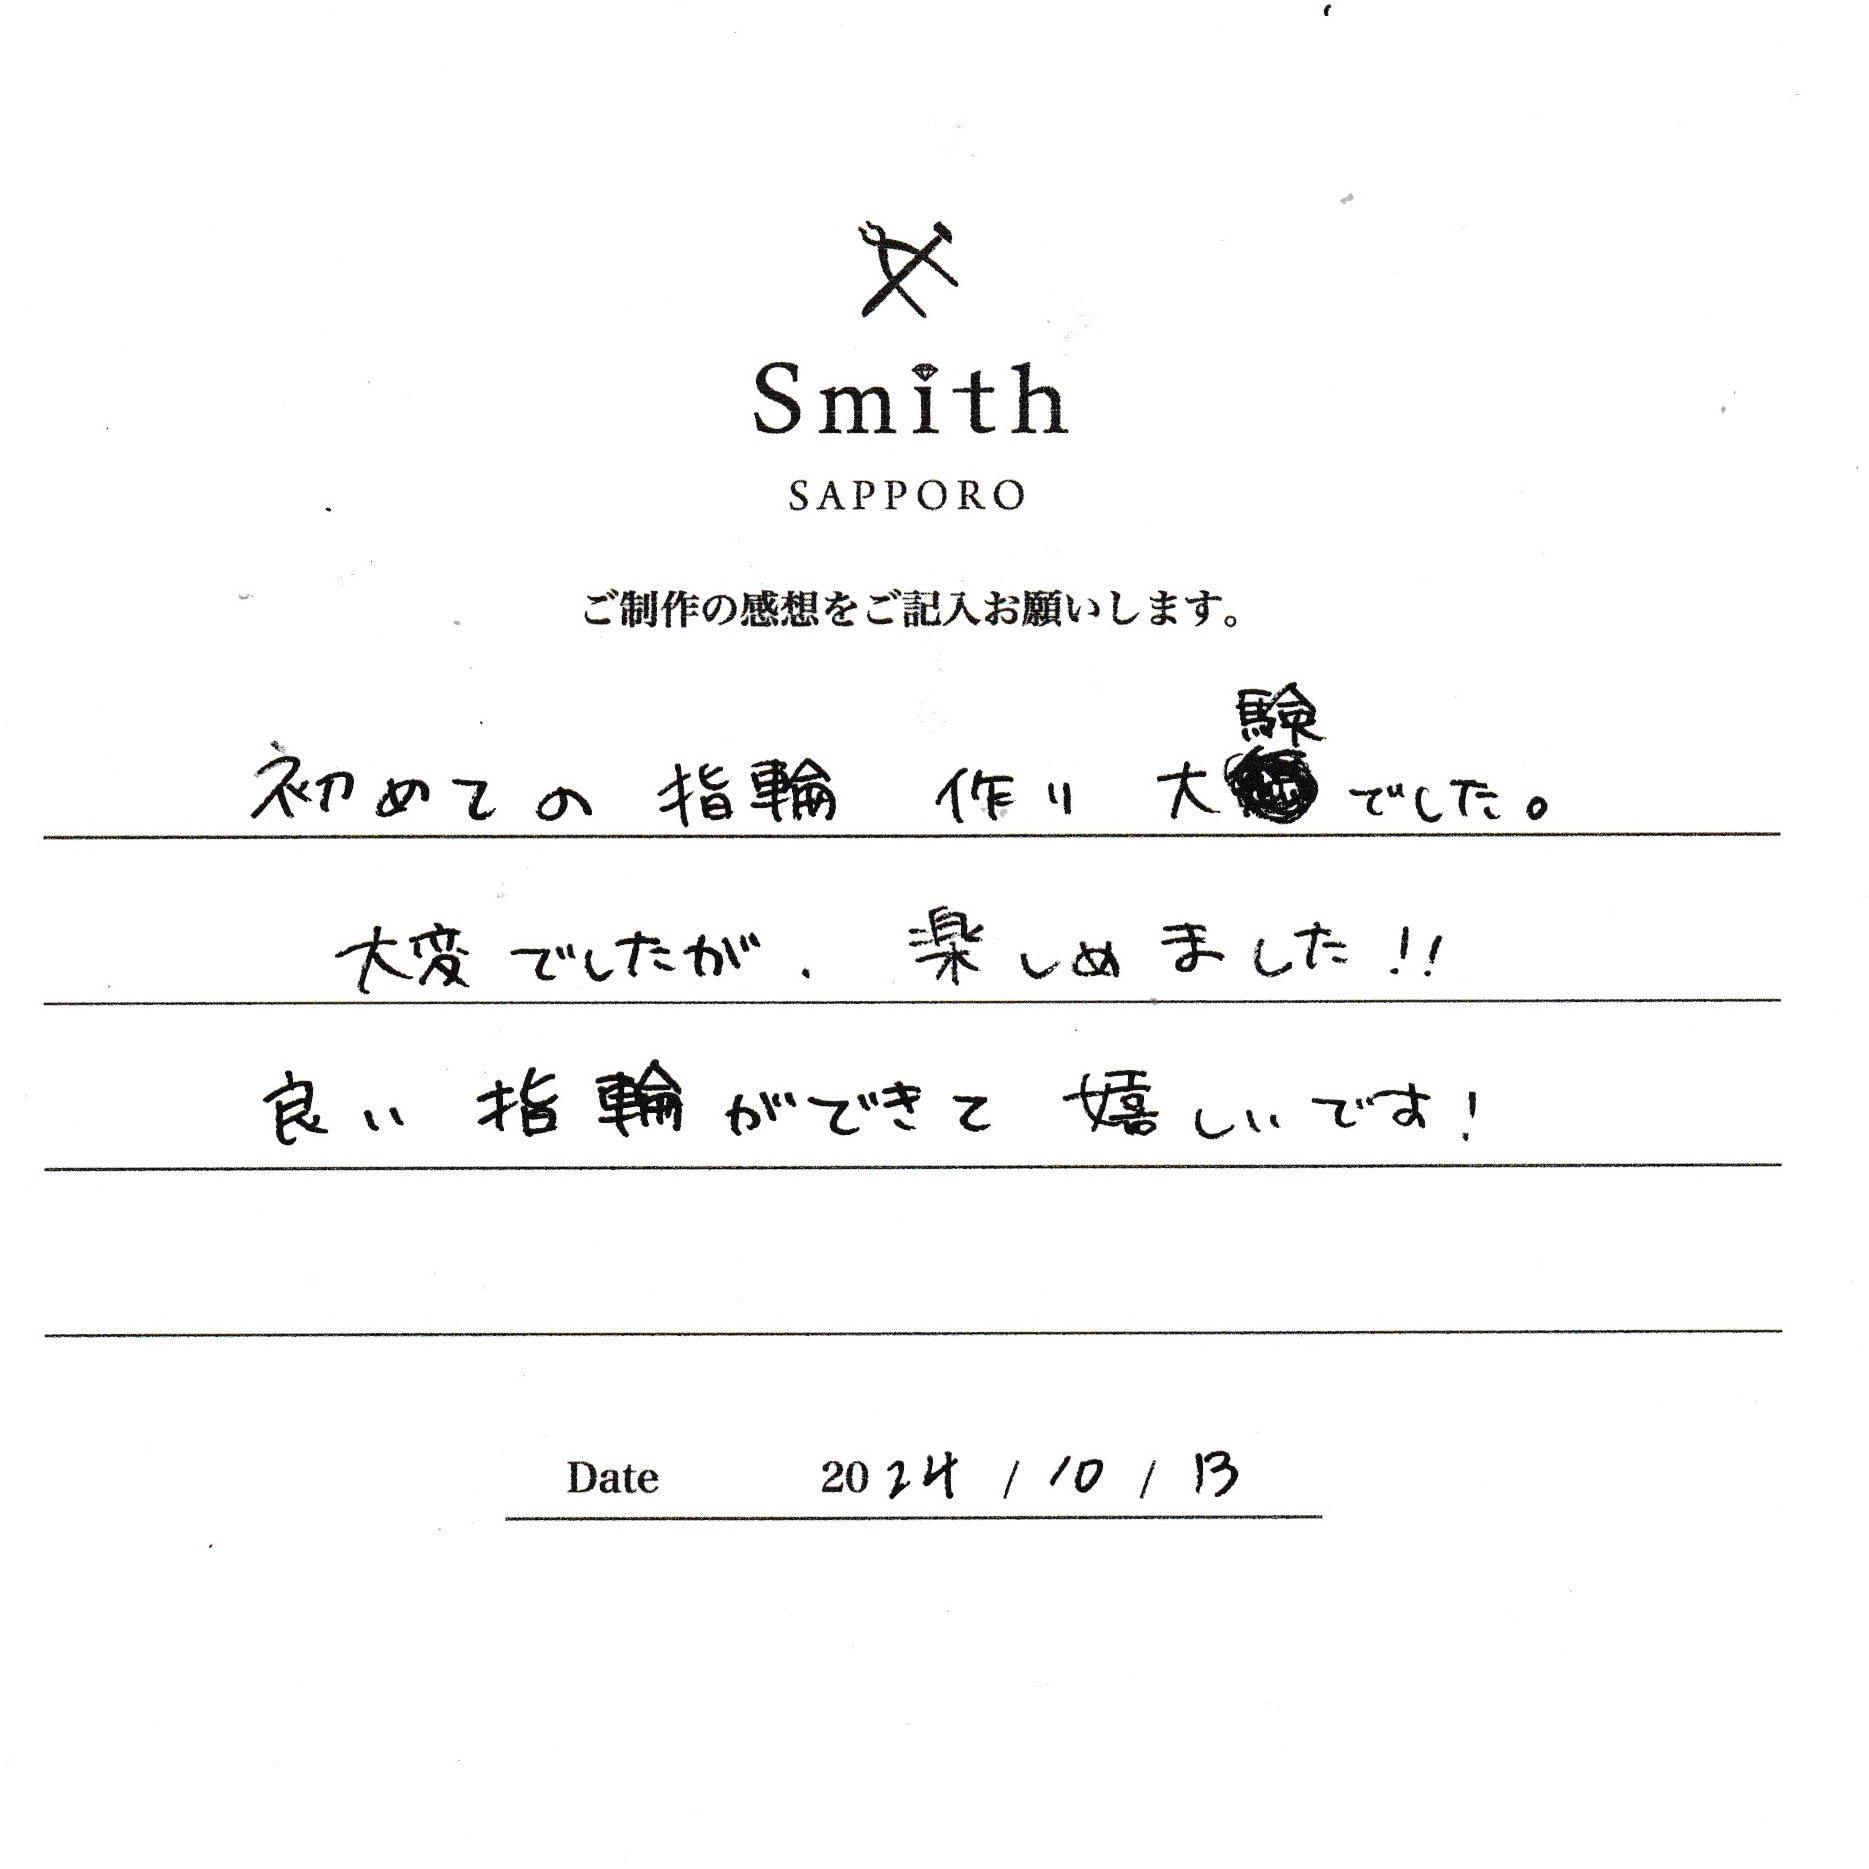 Smith
SAPPORO
ご制作の感想をご記入お願いします。
験
初めての指輪 作り 大 でした。
大変でしたが、楽しめました!!
良い 指輪ができて 嬉しいです!
Date 2024 / 10 / 13